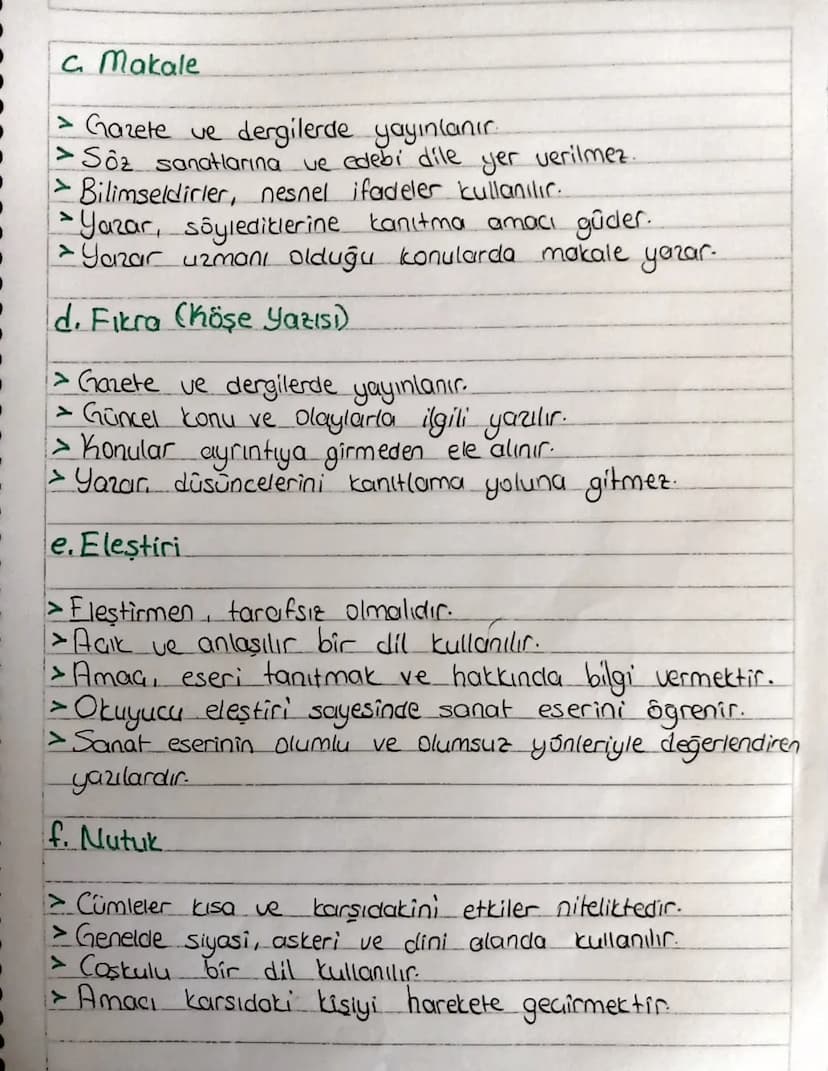 c. Makale
> Gazete ve dergilerde yayınlanır.
> Söz sanatlarına ve edebi dile yer verilmez.
> Bilimseldirler, nesnel ifadeler kullanılır.
> Yazar, söylediklerine kanıtma amacı güder.
> Yazar uzmanı olduğu konularda makale yazar.
d. Fıkra (Köşe Yazısı)
> Gazete ve dergilerde yayınlanır.
> Güncel konu ve olaylarla ilgili yazılır.
> Konular ayrıntıya girmeden ele alınır.
> Yazar, düşüncelerini kanıtlama yoluna gitmez.
e. Eleştiri
> Eleştirmen, tarafsız olmalıdır.
> Açık ve anlaşılır bir dil kullanılır.
> Amaç, eseri tanıtmak ve hakkında bilgi vermektir.
> Okuyucu eleştiri sayesinde sanat eserini öğrenir.
> Sanat eserinin olumlu ve olumsuz yönleriyle değerlendiren
yazılardır.
f. Nutuk
> Cümleler kısa ve karşıdakini etkiler niteliktedir.
> Genelde siyasi, askeri ve dini alanda kullanılır.
> Coşkulu bir dil kullanılır.
> Amacı karşıdaki kişiyi harekete geçirmektir.